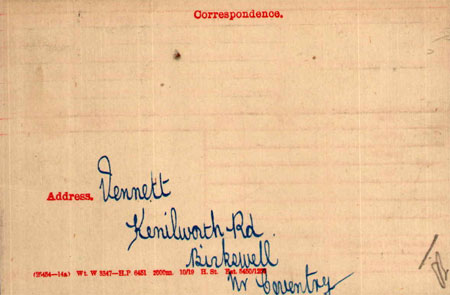 Correspondence.
Address. Vennett
Kenilworth Rd
Birkswell
Nr Coventry
Wt. W 3347—H.P 6451 2500m. 10/19 H. St.